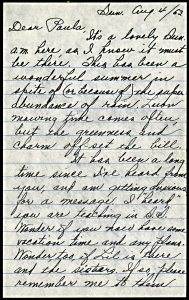 Sun. Aug 4/63
Dear Paula,
It's a lovely Sun.
am here as I know it must
be there. This has been a
wonderful summer in
spite of (or because of) the super
abundance of rain. Lawn
mowing time comes often
but the greenness and
charm offset the bill.
It has been a long
time since I've heard from
you and am getting anxious
for a message. I heard
you are teaching in S.S.
Wonder if you now have some
vacation time and any plans.
Wonder too if Lil is there
and the sisters. If so, please
remember me to them